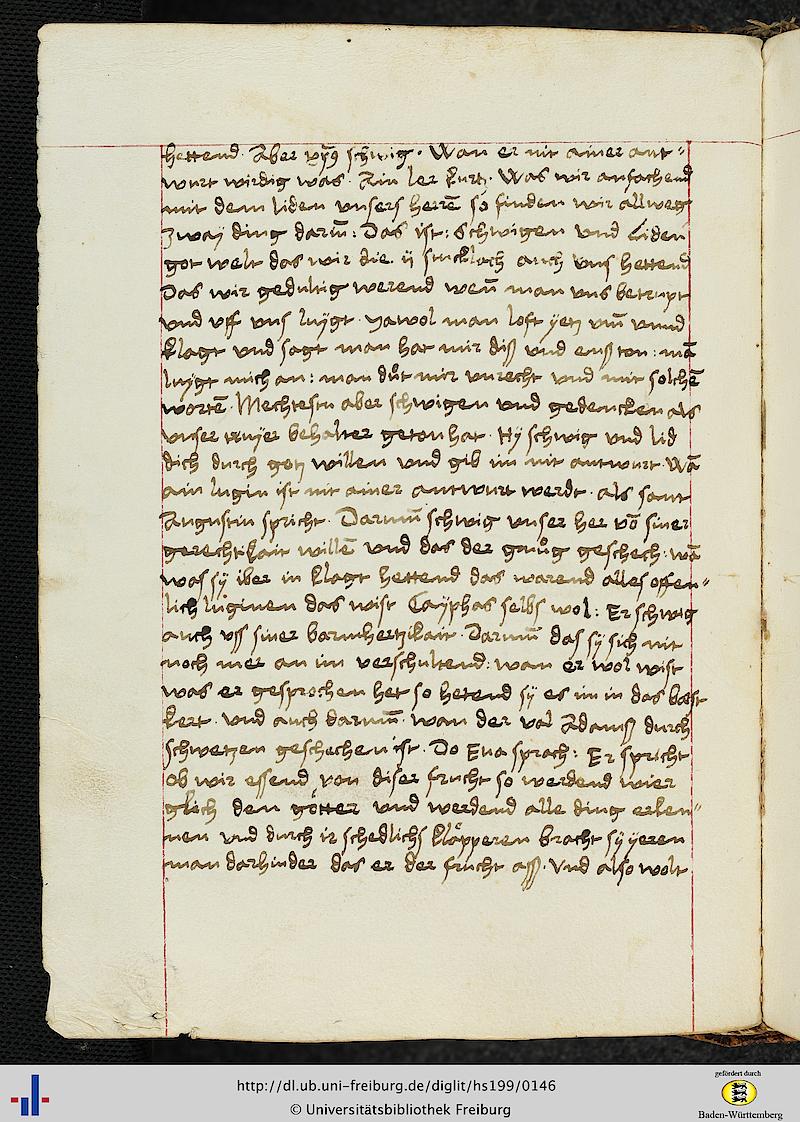 hettend. Aber xps̄ schwig. Wan er nit ainer ant=
wurt wirdig was. Ain ler kurtz. Was wir anfachend
mit dem liden vnsers herrē so finden wir allweg
zway ding darīn: Das ist: Schwigen vnd Liden
got welt das wir die ij stucklach auch vns hettend
Das wir gedultig werend weñ man vns betrüpt
vnd vff vns lüÿgt. man loft ÿetz vm̄ vnnd
klagt vnd sagt man hat mir diß vnd enß ton: mā
lüÿgt mich an: man důt mir vnrecht vnd mit solchē
wortē. Mechtestu aber schwigen vnd gedencken als
vnser behalter geton hat. schwig vnd lid
dich durch gotz willen vnd gib im nit antwurt. Wā
ain lugin ist nit ainer antwurt werdt. als sant
Augustin spricht. Darum̄ schwig vnser her võ siner
gerechtkait willē vnd das der gnůg geschech: wā
was sÿ iber in klagt hettend das warend alles offen=
lich luginen das wist Cayphas selbs wol: Er schwig
auch vss siner barmhertzikait. Darum̄ das sÿ sich nit
noch mer an im verschultend: wan er wol wist
was er gesprochen het so hetend sÿ es im in das böst
kert. vnd auch darum̄. wan der val Adamß durch
schwetzen geschechen ist. Do Eua sprach: Er spricht
ob wir essend von diser frucht so werdend wier
glich den götter vnd werdend alle ding erken=
nen vnd durch ir schedlichs kläpperen bracht sÿ ÿeren
man darhinder das er der frucht aß. Vnd also wolt
http://dl.ub.uni-freiburg.de/diglit/hs199/0146
© Universitätsbibliothek Freiburg
gefördert durch
Baden-Württemberg